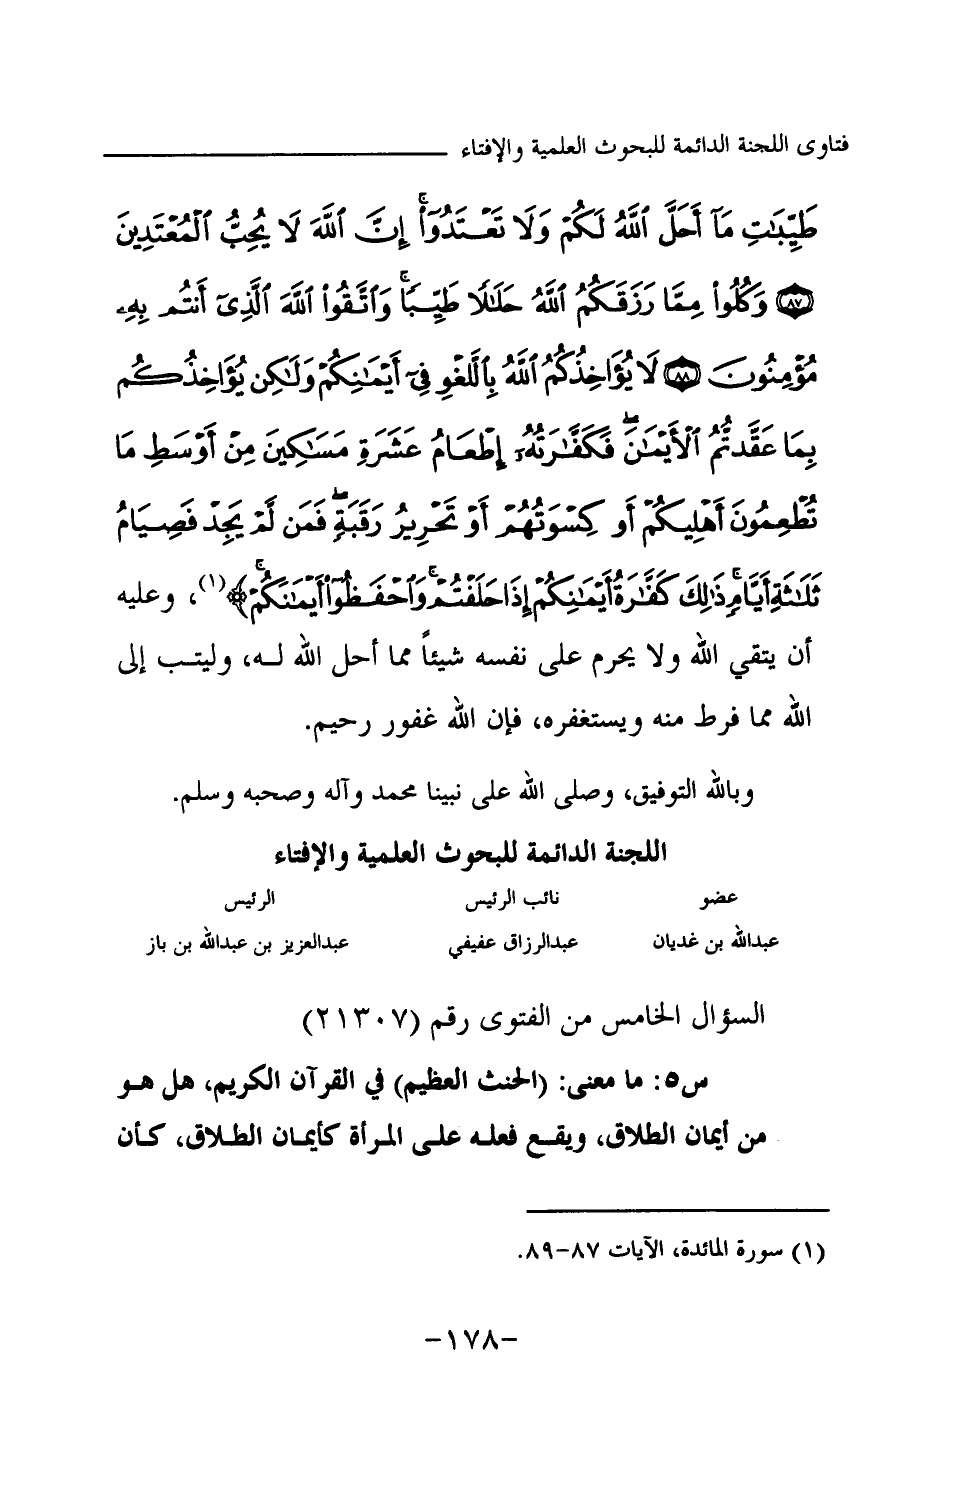 فتاوى اللجنة الدائمة للبحوث العلمية والإفتاء
طَيِّبَٰتِ مَآ أَحَلَّ ٱللَّهُ لَكُمْ وَلَا تَعْتَدُوٓا۟ۚ إِنَّ ٱللَّهَ لَا يُحِبُّ ٱلْمُعْتَدِينَ
﴿٨٧﴾ وَكُلُوا۟ مِمَّا رَزَقَكُمُ ٱللَّهُ حَلَٰلًا طَيِّبًاۚ وَٱتَّقُوا۟ ٱللَّهَ ٱلَّذِىٓ أَنتُم بِهِۦ
مُؤْمِنُونَ ﴿٨٨﴾ لَا يُؤَاخِذُكُمُ ٱللَّهُ بِٱللَّغْوِ فِىٓ أَيْمَٰنِكُمْ وَلَٰكِن يُؤَاخِذُكُم
بِمَا عَقَّدتُّمُ ٱلْأَيْمَٰنَۖ فَكَفَّٰرَتُهُۥٓ إِطْعَامُ عَشَرَةِ مَسَٰكِينَ مِنْ أَوْسَطِ مَا
تُطْعِمُونَ أَهْلِيكُمْ أَوْ كِسْوَتُهُمْ أَوْ تَحْرِيرُ رَقَبَةٍۖ فَمَن لَّمْ يَجِدْ فَصِيَامُ
ثَلَٰثَةِ أَيَّامٍۚ ذَٰلِكَ كَفَّٰرَةُ أَيْمَٰنِكُمْ إِذَا حَلَفْتُمْۚ وَٱحْفَظُوٓا۟ أَيْمَٰنَكُمْۚ﴾(١)، وعليه
أن يتقي الله ولا يحرم على نفسه شيئاً مما أحل الله لـه، وليتـب إلى
الله مما فرط منه ويستغفره، فإن الله غفور رحيم.
وبالله التوفيق، وصلى الله على نبينا محمد وآله وصحبه وسلم.
اللجنة الدائمة للبحوث العلمية والإفتاء
عضو نائب الرئيس الرئيس
عبدالله بن غديان عبدالرزاق عفيفي عبدالعزيز بن عبدالله بن باز
السؤال الخامس من الفتوى رقم (٢١٣٠٧)
س٥: ما معنى: (الحنث العظيم) في القرآن الكريم، هل هـو
من أيمان الطلاق، ويقـع فعلـه علـى المـرأة كأيمـان الطـلاق، كـأن
(١) سورة المائدة، الآيات ٨٧-٨٩.
-١٧٨-